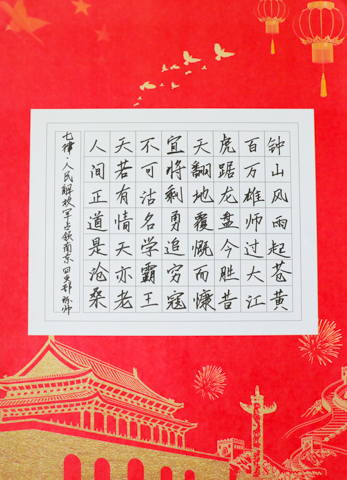 钟山风雨起苍黄
百万雄师过大江
虎踞龙盘今胜昔
天翻地覆慨而慷
宜将剩勇追穷寇
不可沽名学霸王
天若有情天亦老
人间正道是沧桑
七律·人民解放军占领南京